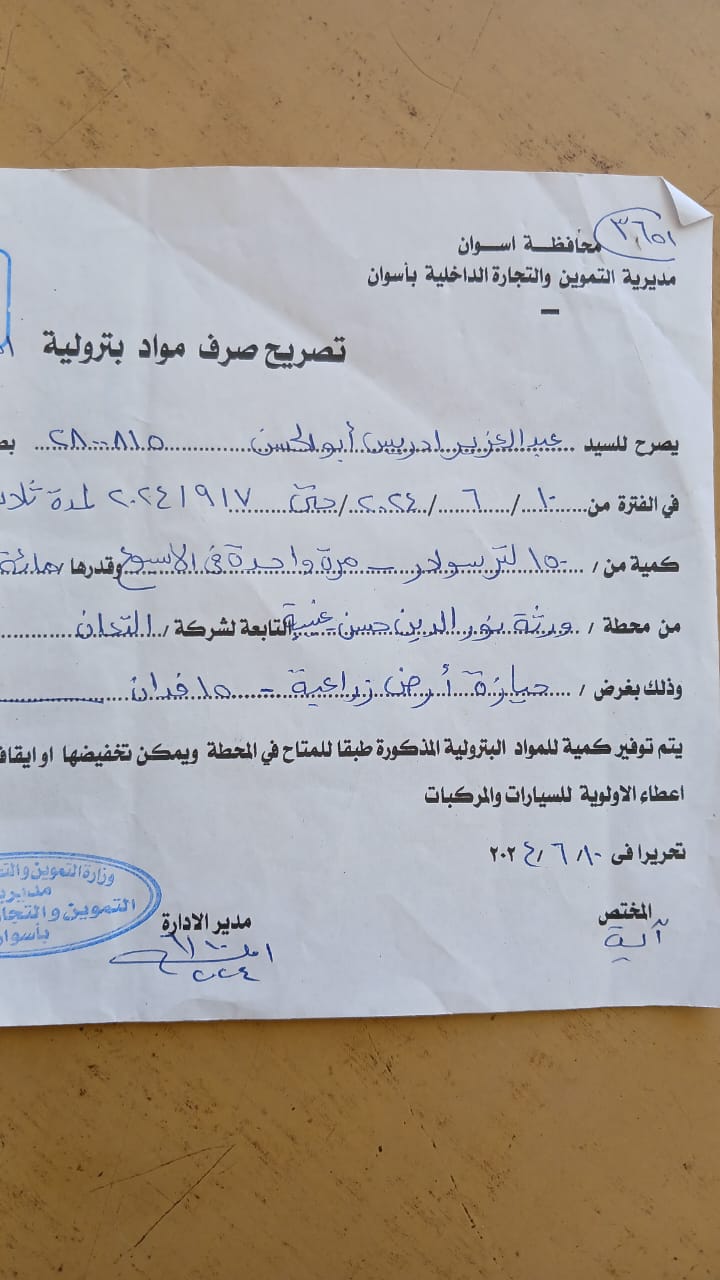 ٣,٦٥١
محافظة اسوان
مديرية التموين والتجارة الداخلية بأسوان
تصريح صرف مواد بترولية
يصرح للسيد عبد العزيز ادريس أبو الحسن
في الفترة من ١٠ / ٦ / ٢٠٢٤ / حتى ٢٠٢٤/٩/٧ لمدة
كمية من / ١٥٠ لتر سولار - مرة واحدة في الاسبوع وقدرها
من محطة / ورثة نور الدين حسن التابعة لشركة /
وذلك بغرض / حيازة أرض زراعية - ١٥ فدان
يتم توفير كمية للمواد البترولية المذكورة طبقا للمتاح في المحطة ويمكن تخفيضها او
اعطاء الاولوية للسيارات والمركبات
تحريرا فى ١٠/ ٦ /٢٠٢٤
المختص
آية
مدير الادارة
٢٠٢٤
وزارة التموين
التموين
بأسوان